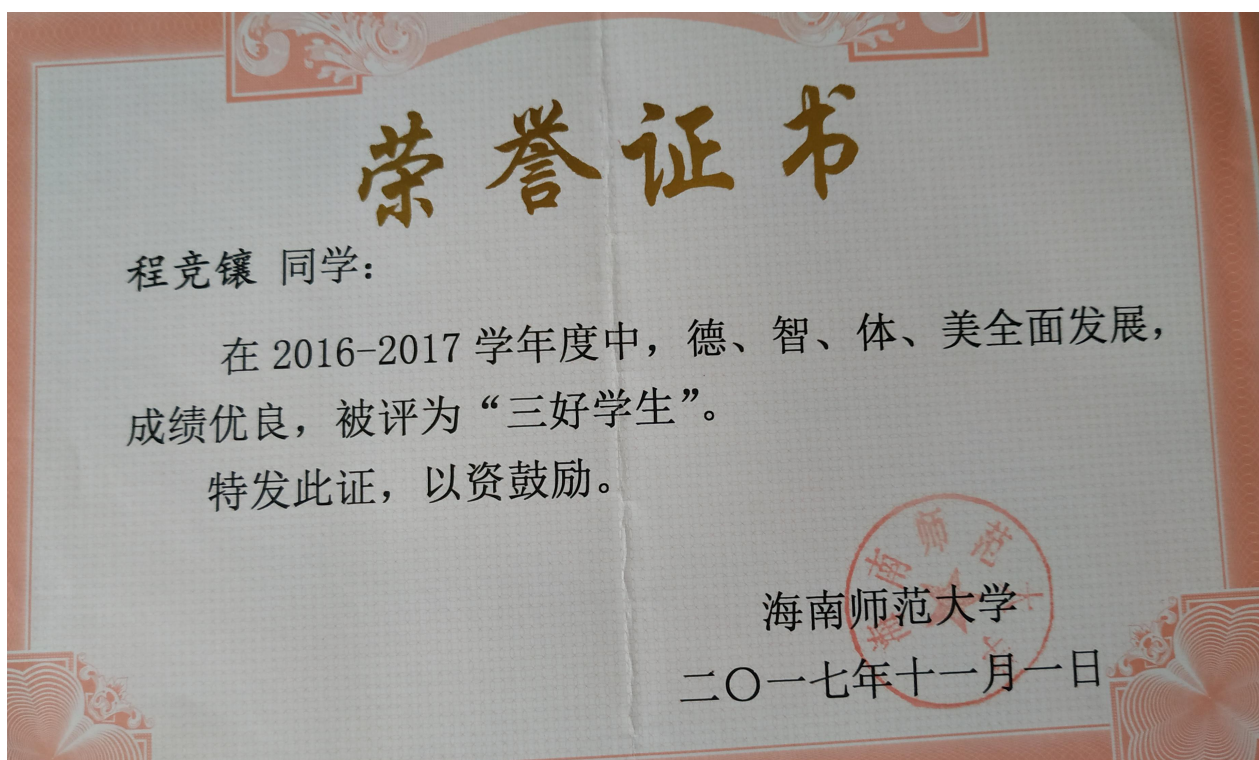 荣誉证书
程竞镶 同学：
在 2016-2017 学年度中，德、智、体、美全面发展，
成绩优良，被评为“三好学生”。
特发此证，以资鼓励。
海南师范大学
海南师范大学
二〇一七年十一月一日